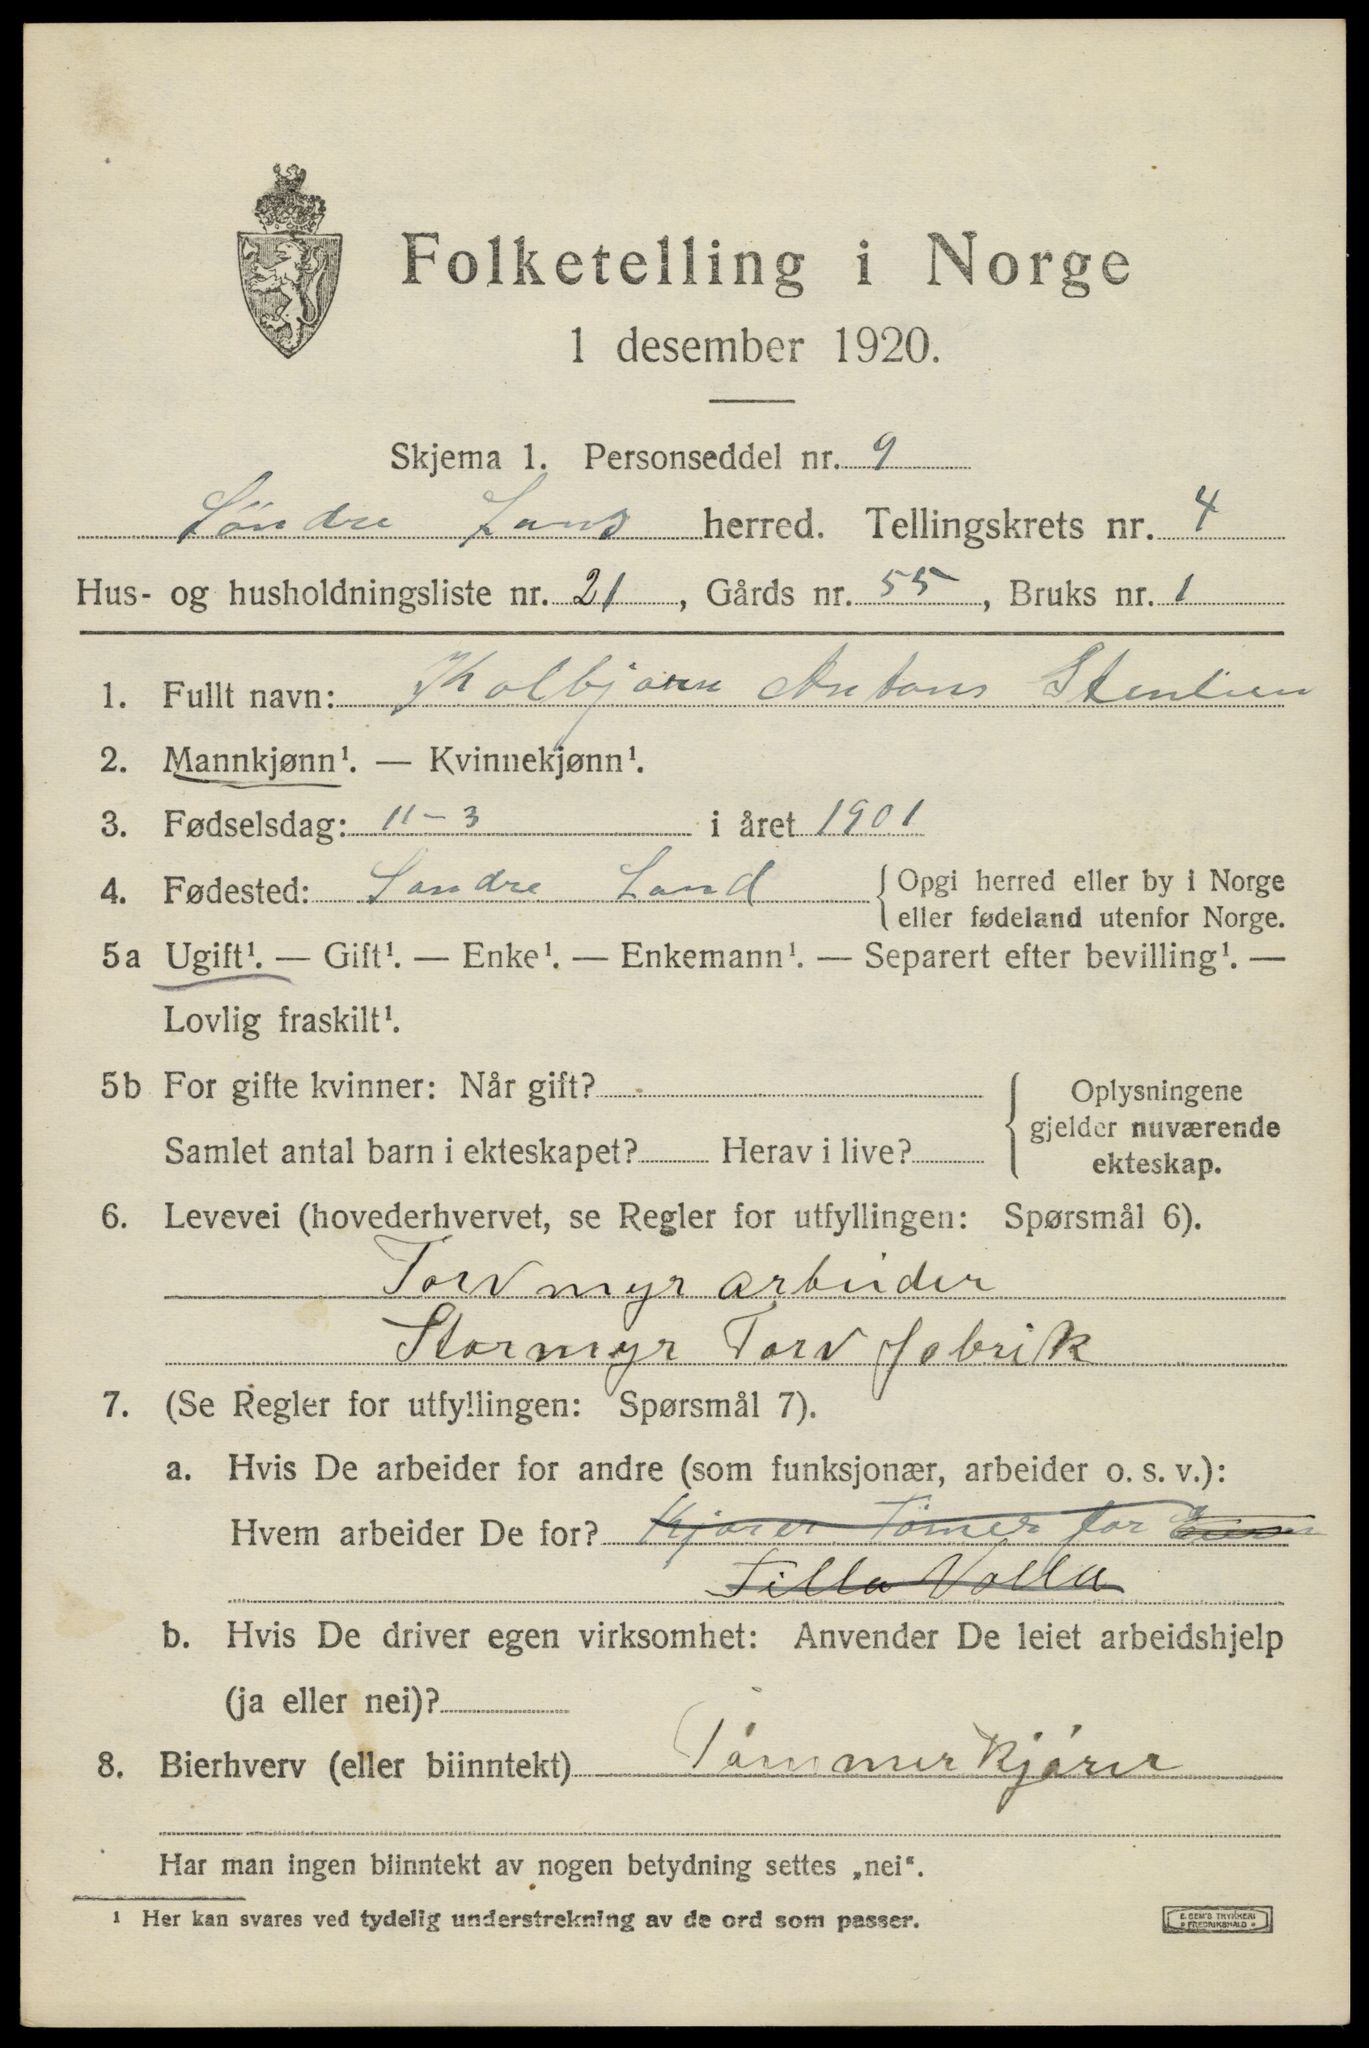 Folketelling i Norge
1 desember 1920.
Skjema 1. Personseddel nr. 9
Søndre Land herred. Tellingskrets nr. 4
Hus- og husholdningsliste nr. 21, Gårds nr. 55, Bruks nr. 1
1. Fullt navn: Kolbjørn Antons Stenlien
2. Mannkjønn¹. — Kvinnekjønn¹.
3. Fødselsdag: 11-3 i året 1901
4. Fødested: Søndre Land {Opgi herred eller by i Norge
eller fødeland utenfor Norge.
5a Ugift¹. — Gift¹. — Enke¹. — Enkemann¹. — Separert efter bevilling¹. —
Lovlig fraskilt¹.
5b For gifte kvinner: Når gift?
Samlet antal barn i ekteskapet? Herav i live?
Oplysningene
gjelder nuværende
ekteskap.
6. Levevei (hovederhvervet, se Regler for utfyllingen: Spørsmål 6).
Torvmyr arbeider
Stormyr Torv fabrik
7. (Se Regler for utfyllingen: Spørsmål 7).
a. Hvis De arbeider for andre (som funksjonær, arbeider o. s. v.):
Hvem arbeider De for? Kjører Tømer for
Tilla Volla
b. Hvis De driver egen virksomhet: Anvender De leiet arbeidshjelp
(ja eller nei)?
8. Bierhverv (eller biinntekt) Tømmerkjører
Har man ingen biinntekt av nogen betydning settes „nei“.
¹ Her kan svares ved tydelig understrekning av de ord som passer.
E. SEM'S TRYKKERI
FREDRIKSHALD